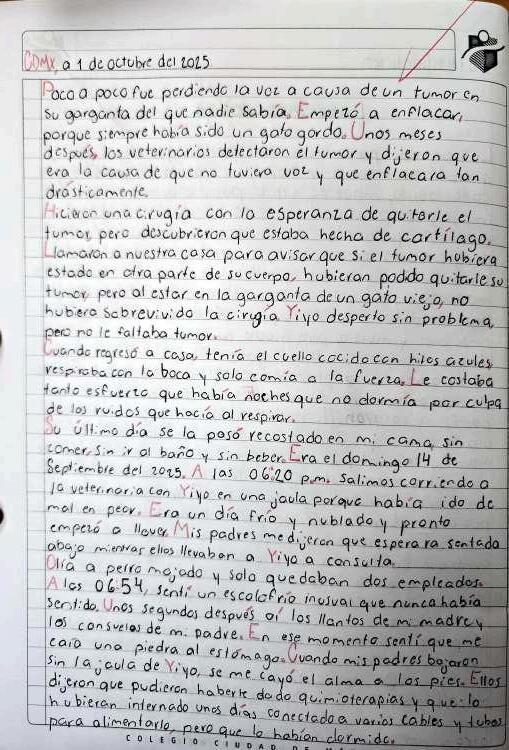 CDMX, a 1 de octubre del 2025
Poco a poco fue perdiendo la voz a causa de un tumor en
su garganta del que nadie sabía. Empezó a enflacar,
porque siempre había sido un gato gordo. Unos meses
después, los veterinarios detectaron el tumor y dijeron que
era la causa de que no tuviera voz y que enflacara tan
drásticamente.
Hicieron una cirugía con la esperanza de quitarle el
tumor, pero descubrieron que estaba hecha de cartílago.
Llamaron a nuestra casa para avisar que si el tumor hubiera
estado en otra parte de su cuerpo, hubieran podido quitarle su
tumor, pero al estar en la garganta de un gato viejo, no
hubiera sobrevivido la cirugía. Yiyo despertó sin problema,
pero no le faltaba tumor.
Cuando regresó a casa, tenía el cuello cocido con hilos azules,
respiraba con la boca y solo comía a la fuerza. Le costaba
tanto esfuerzo que había noches que no dormía por culpa
de los ruidos que hacía al respirar.
Su último día se la pasó recostado en mi cama, sin
comer, sin ir al baño y sin beber. Era el domingo 14 de
Septiembre del 2025. A las 06:20 p.m. salimos corriendo a
la veterinaria con Yiyo en una jaula porque había ido de
mal en peor. Era un día frío y nublado y pronto
empezó a llover. Mis padres me dijeron que esperara sentada
abajo mientras ellos llevaban a Yiyo a consulta.
Olía a perro mojado y solo quedaban dos empleados.
A las 06:54, sentí un escalofrío inusual que nunca había
sentido. Unos segundos después oí los llantos de mi madre y
los consuelos de mi padre. En ese momento sentí que me
caía una piedra al estómago. Cuando mis padres bajaron
sin la jaula de Yiyo, se me cayó el alma a los pies. Ellos
dijeron que pudieron haberle dado quimioterapias y que lo
hubieran internado unos días conectado a varios cables y tubos
para alimentarlo, pero que lo habían dormido.
COLEGIO CIUDAD DE